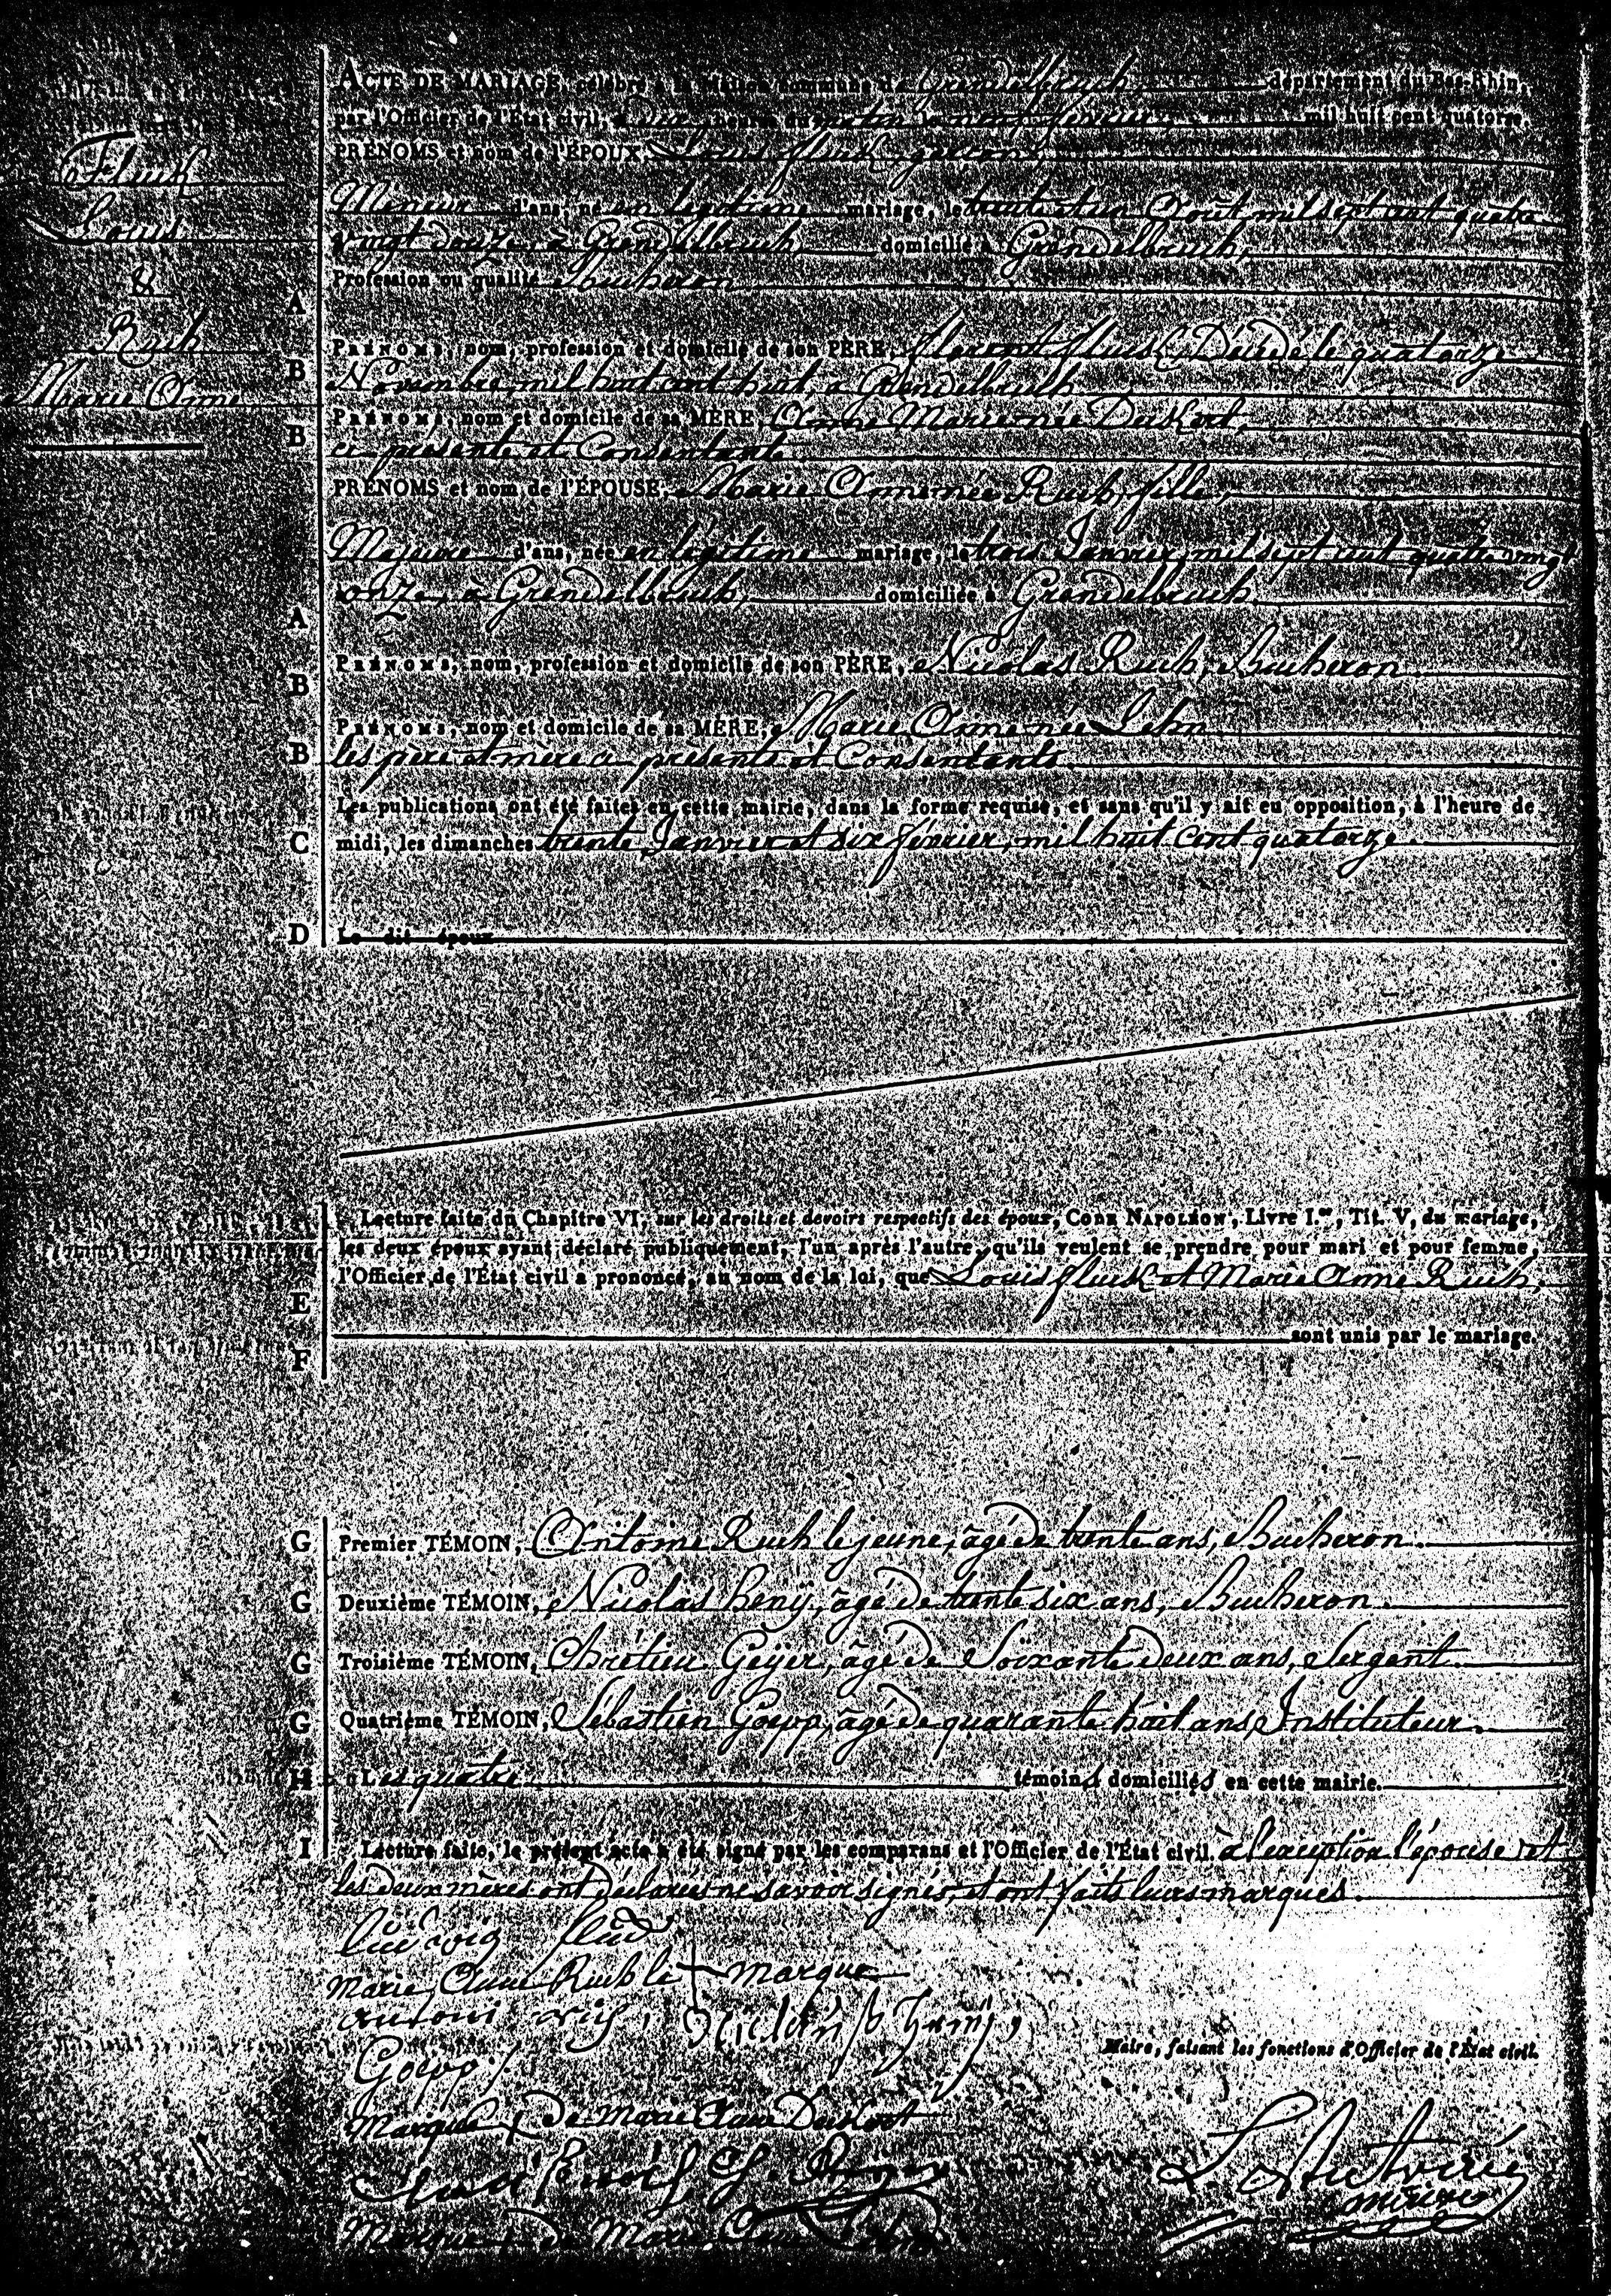 Fluck
Louis
&
Ruch
Marie Anne
ACTE DE MARIAGE, célébré à la Maison commune de Grendelbruch, département du Bas-Rhin,
par l'Officier de l'État civil, à heures du matin neuf février mil huit cent quatorze.
PRÉNOMS et nom de l'ÉPOUX, Louis fluck, garçon,
Mineur d'ans, né en légitime mariage, le trente et un Août mil sept cent quatre
vingt douze, à Grendelbruch, domicilié à Grendelbruch,
A Profession ou qualité Bucheron
PRÉNOMS, nom, profession et domicile de son PÈRE, florent fluck, Décédé le quatorze
B Novembre mil huit cent huit, à Grendelbruch
PRÉNOMS, nom et domicile de sa MÈRE, Anne Marie née Duskort,
B ci présente et Consentante
PRÉNOMS et nom de l'ÉPOUSE, Marie Anne née Ruch, fille,
Majeure d'ans, née en légitime mariage, le trois Janvier mil sept cent quatre vingt
onze, à Grendelbruch, domiciliée à Grendelbruch
A
PRÉNOMS, nom, profession et domicile de son PÈRE, Nicolas Ruch, Bucheron
B
PRÉNOMS, nom et domicile de sa MÈRE, Marie Anne née Lehn
B les père et mère ci présents et Consentants
Les publications ont été faites en cette mairie, dans la forme requise, et sans qu'il y ait eu opposition, à l'heure de
C midi, les dimanches trente Janvier et six février, mil huit Cent quatorze.
D Le dit époux
Lecture faite du Chapitre VI, sur les droits et devoirs respectifs des époux, CODE NAPOLÉON, Livre I.er, Tit. V, du mariage,
les deux époux ayant déclaré publiquement, l'un après l'autre, qu'ils veulent se prendre pour mari et pour femme,
l'Officier de l'État civil a prononcé, au nom de la loi, que Louis fluck et Marie Anne Ruch,
E
sont unis par le mariage.
F
G Premier TÉMOIN, Antoine Ruch le jeune, âgé de trente ans, Bucheron.
G Deuxième TÉMOIN, Nicolas heny, âgé de trente six ans, Bucheron.
G Troisième TÉMOIN, Chrétien Geÿer, âgé de Soixante deux ans, Sergent.
G Quatrième TÉMOIN, Sébastien Goepp, âgé de quarante huit ans, Instituteur.
H Les quatre témoins domiciliés en cette mairie.
I Lecture faite, le présent acte a été signé par les comparans et l'Officier de l'État civil. à l'exception l'épouse et
les deux mères ont déclarées ne savoir signés, et ont faits leurs marques.
Ludwig fluck
Marie Anne Ruch la + marque
antoni
Goepp
Maire, faisant les fonctions d'Officier de l'État civil.
Marque + de Marie Anne Duskort
Marque + de Marie Anne Lehn